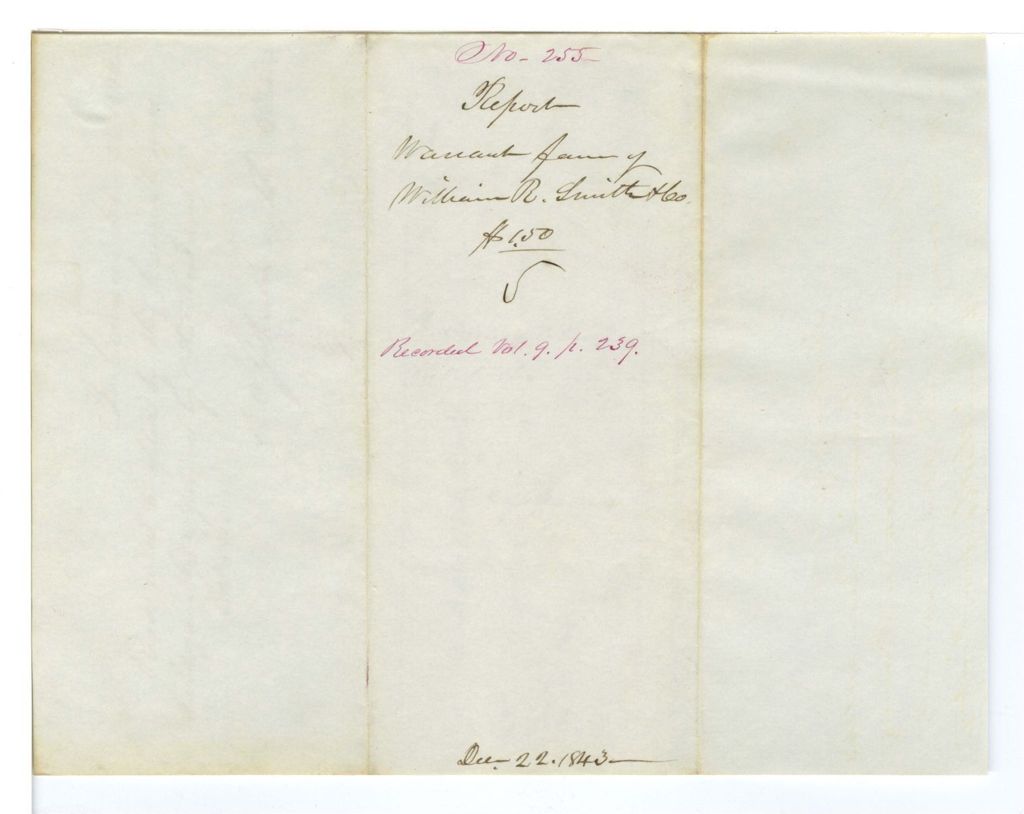 No. 255
Report
Warrant favor of
William R. Smith & Co.
$1.50
Recorded Vol. 9. p. 239.
Dec. 22. 1843